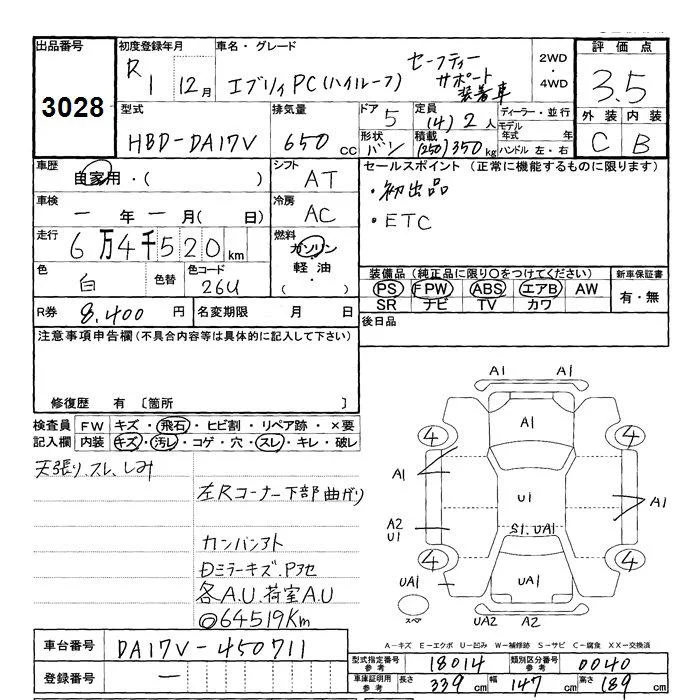 出品番号 初度登録年月 車名・グレード 2WD・4WD 評価点
3028 R1 12月 エブリィPC(ハイルーフ) セーフティーサポート装着車 3.5
型式 排気量 ドア 5 定員 (4) 2人 ディーラー・並行 外装 内装
HBD-DA17V 650cc 形状 バン 積載 (250) 350kg モデル年式 年 ハンドル 左・右 C B
車歴 自家用・( ) シフト AT セールスポイント(正常に機能するものに限ります)
車検 ー年ー月( 日) 冷房 AC ・初出品
走行 6万4千520km 燃料 ガソリン・軽油・( ) ・ETC
色 白 色替 色コード 26U 装備品(純正品に限り○をつけてください) 新車保証書
PS FPW ABS エアB AW 有・無
SR ナビ TV カワ
R券 8,400円 名変期限 月 日 後日品
注意事項申告欄(不具合内容等は具体的に記入して下さい)
修復歴 有 〔箇所 〕
検査員 FW キズ・飛石・ヒビ割・リペア跡・×要
記入欄 内装 キズ・汚レ・コゲ・穴・スレ・キレ・破レ
天張り、スレ、しみ
左Rコーナー下部曲がり
カンバンアト
Dミラーキズ、Pアセ
各A.U、荷室A.U
◎64519Km
A1
A1
4 4
A1 U1 A1
A2
U1 S1.UA1
4 4
UA1 UA1 A1
スペア UA2 A2
A−キズ E−エクボ U−凹み W−補修跡 S−サビ C−腐食 XX−交換済
車台番号 DA17V-450711 型式指定番号参考 18014 類別区分番号参考 0040
登録番号 ー 車庫証明用参考 長さ 339cm 幅 147cm 高さ 189cm